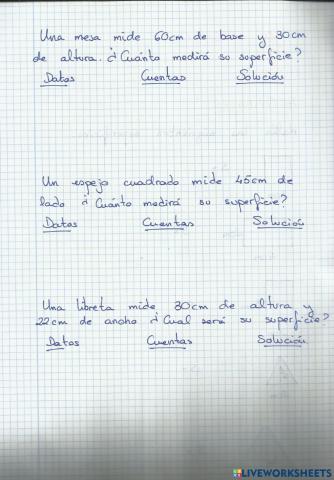 Una mesa mide 60cm de base y 30cm
de altura. ¿Cuánto medirá su superficie?
Datos Cuentas Solución
Un espejo cuadrado mide 45cm de
lado ¿Cuánto medirá su superficie?
Datos Cuentas Solución
Una libreta mide 30cm de altura y
22cm de ancho ¿Cual será su superficie?
Datos Cuentas Solución
LIVEWORKSHEETS